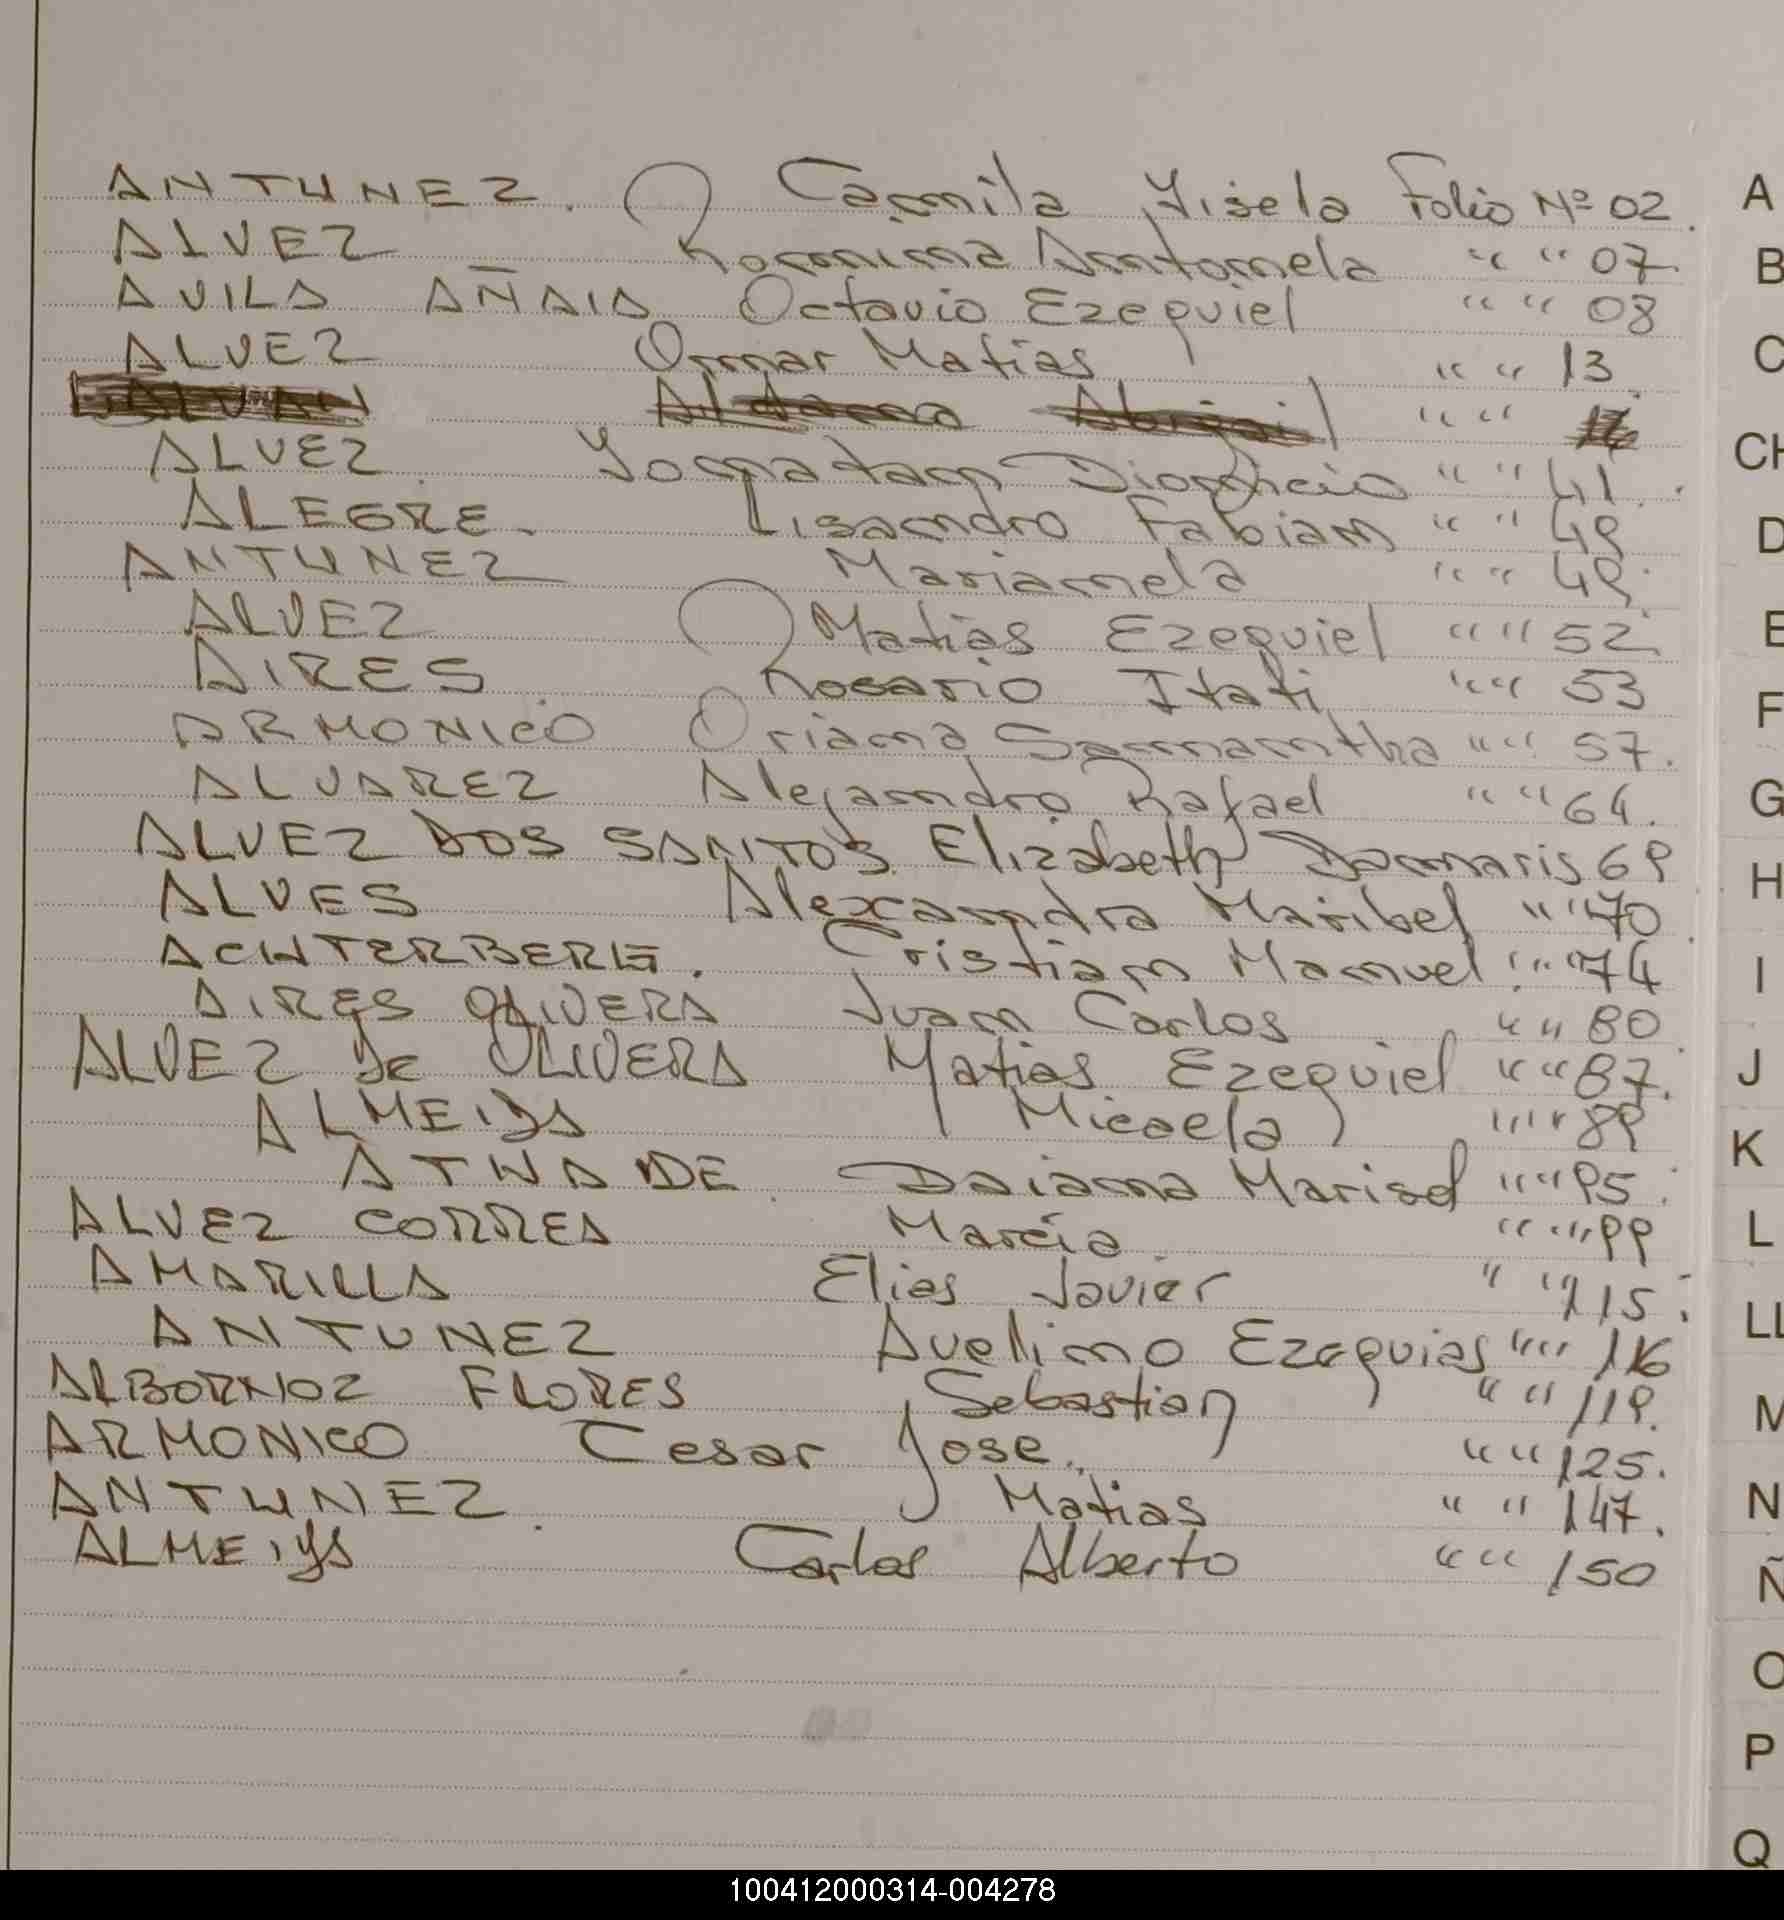 ANTUNEZ. Camila Yisela Folio Nº 02
A
ALVEZ Romina Antonela " " 07
B
AVILA AÑAIA Octavio Ezequiel " " 08
ALVEZ Omar Matias " " 13
C
GALVAN Aldana Abigail " "
ALVEZ Yonatan Dionicio " " 41
CH
ALEGRE. Lisandro Fabian " " 49
D
ANTUNEZ Marianela " " 49
ALVEZ Matias Ezequiel " " 52
E
AIRES Rosario Itati " " 53
F
ARMONICO Oriana Samantha " " 57.
ALVAREZ Alejandro Rafael " " 64.
G
ALVEZ DOS SANTOS Elizabeth Damaris 69
H
ALVES Alexandra Maribel " " 70
ACHTERBERG. Cristian Manuel " " 74
I
AIRES OLIVERA Juan Carlos " " 80
ALVEZ De OLIVERA Matias Ezequiel " " 87.
J
ALMEIDA Micaela " " 89
K
Daiana Marisol " " 95
ALVEZ CORREA Marcia " " 99
L
AMARILLA Elias Javier " " 115
LL
ANTUNEZ Avelino Ezequias " " 116
ALBORNOZ FLORES Sebastian " " 119.
M
ARMONICO Cesar Jose. " " 125.
ANTUNEZ. Matias " " 147.
N
ALMEIDA Carlos Alberto " " 150
Ñ
O
P
Q
100412000314-004278